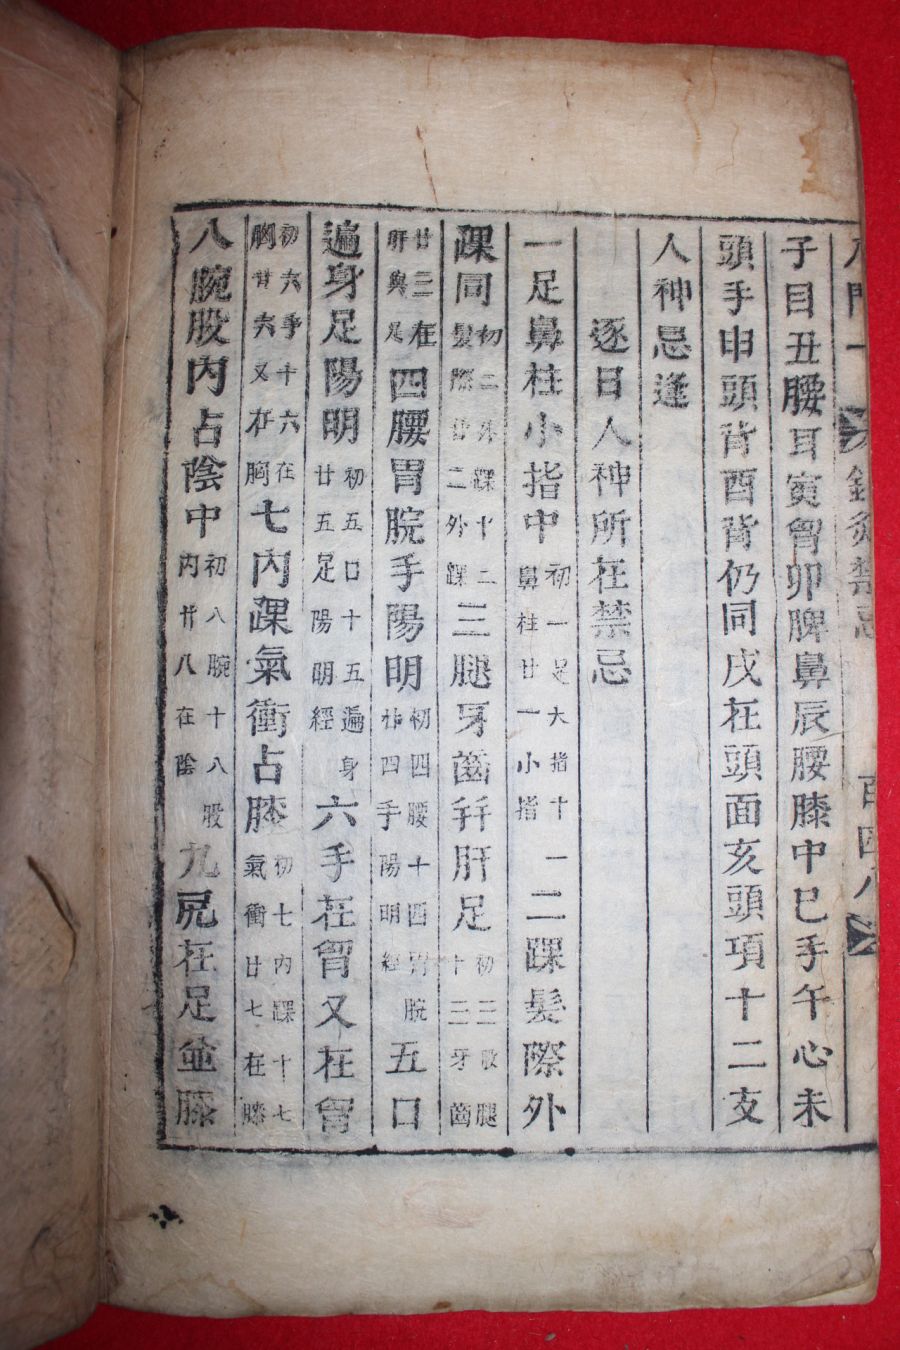 入門一 鍼灸禁忌 百四八
子目丑腰耳寅胷卯脾鼻辰腰膝中巳手午心未
頭手申頭背酉背仍同戌在頭面亥頭項十二支
人神忌逢
逐日人神所在禁忌
一足鼻柱小指中初一足大指十一鼻柱廿一小指二踝髮際外
踝同初二外踝十二髮際廿二外踝三腿牙齒幷肝足初三股腿十三牙齒
廿三在肝與足四腰胃脘手陽明初四腰十四胃脘廿四手陽明經五口
遍身足陽明初五口十五遍身廿五足陽明經六手在胷又在胷
初六手十六在胸廿六又在胸七內踝氣衝占膝初七內踝十七氣衝廿七在膝
八腕股內占陰中初八腕十八股內廿八在陰九尻在足並膝